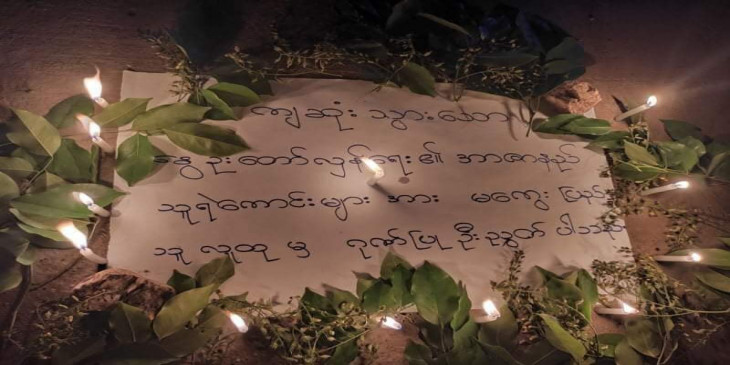 ကျဆုံး သွားသော
နွေဦးတော်လှန်ရေး၏ အာဇာနည်
သူရဲကောင်းများ အား မကွေး ပြည်
သူ လူထု မှ ဂုဏ်ပြု ဦးညွှတ် ပါသည်